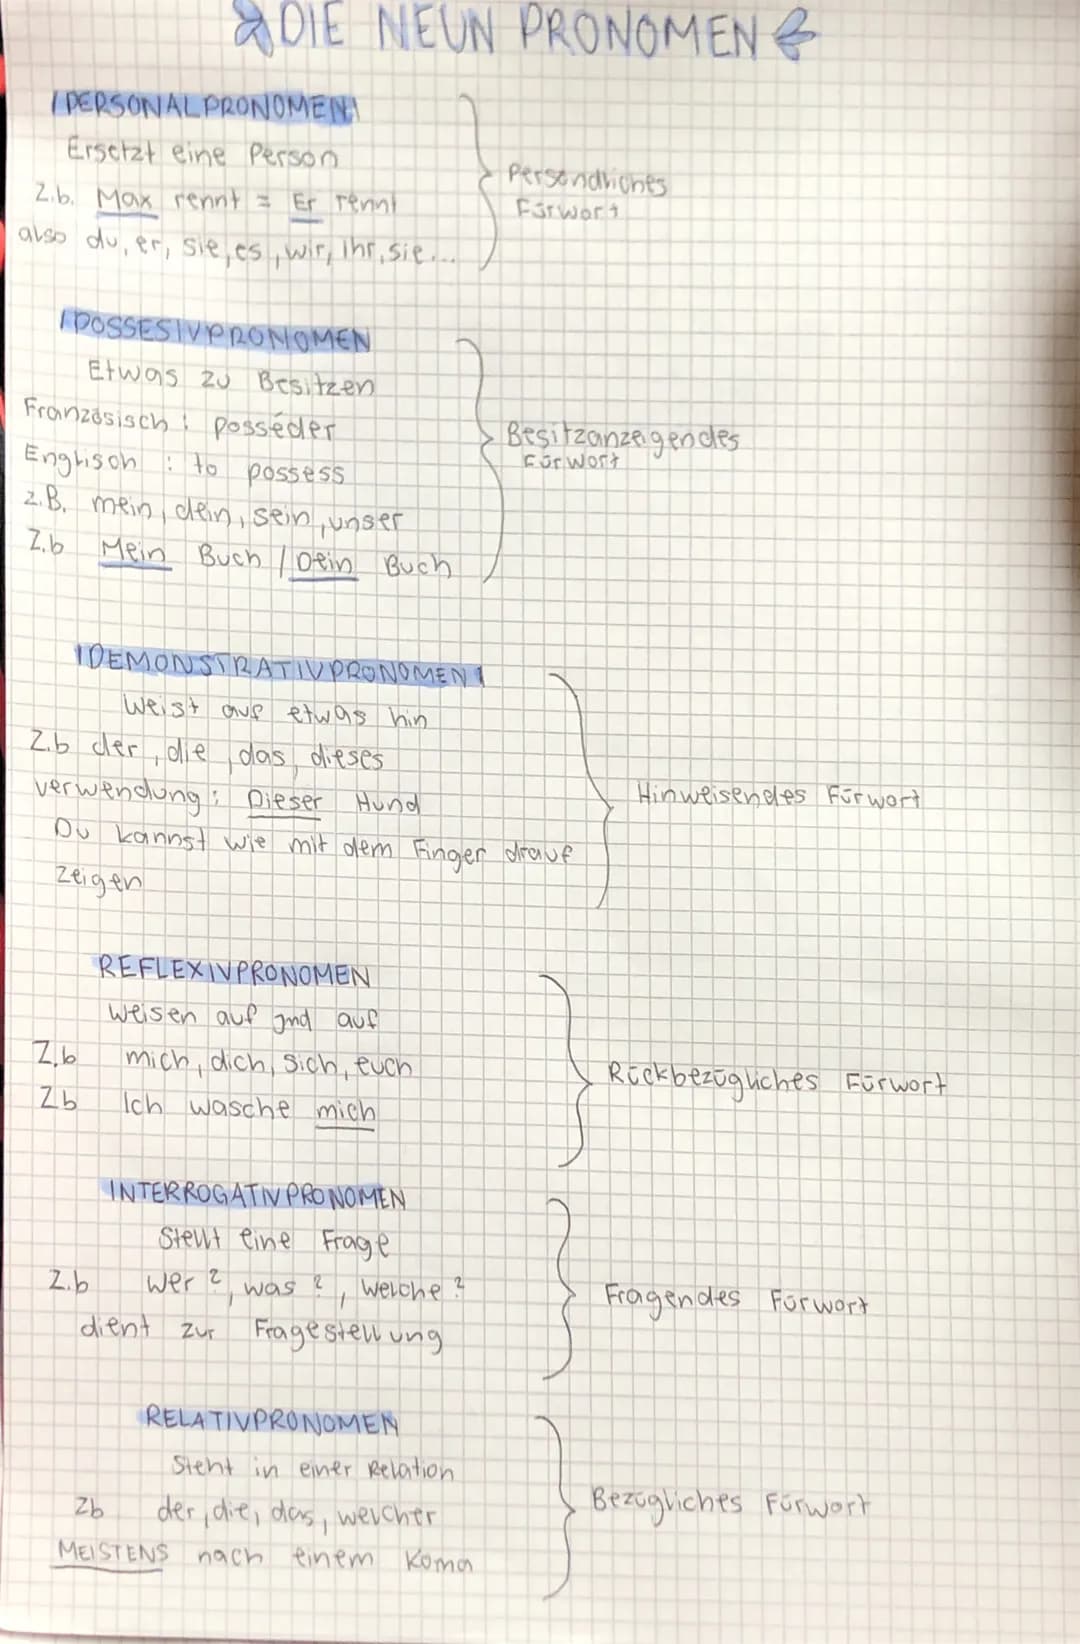 DIE NEUN PRONOMEN
PERSONALPRONOMEN
Ersetzt eine Person
Z.b. Max rennt = Er rennt
also du, er, sie, es, wir, ihr, sie...
Persöndliches
Fürwort
POSSESIVPRONOMEN
Etwas zu Besitzen
Französisch : posséder
Englisch : to possess
z.B. mein, dein, sein, unser
Z.b Mein Buch / Dein Buch
Besitzanzeigendes
Fürwort
DEMONSTRATIVPRONOMEN
Weist auf etwas hin
Z.b der, die, das, dieses
verwendung: Dieser Hund
Du kannst wie mit dem Finger drauf
zeigen
Hinweisendes Fürwort
REFLEXIVPRONOMEN
Weisen auf jnd auf
Z.b mich, dich, sich, euch
Zb Ich wasche mich
Rückbezügliches Fürwort
INTERROGATIVPRONOMEN
Stellt eine Frage
Z.b wer?, was?, welche?
dient zur Fragestellung
Fragendes Fürwort
RELATIVPRONOMEN
Steht in einer Relation
Zb der, die, das, welcher
MEISTENS nach einem Koma
Bezügliches Fürwort